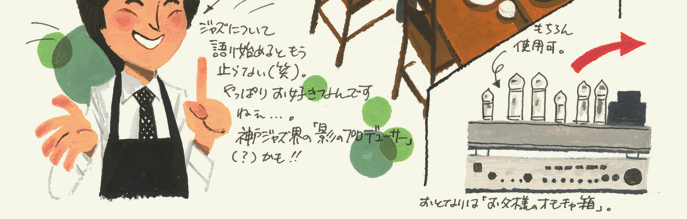 ジャズについて
語り始めるともう
止らない(笑)。
やっぱりお好きなんです
ねぇ…。
神戸ジャズ界の「影のプロデューサー」
(?)かも!!
もちろん
使用可。
おとなりは「お父様のオモチャ箱」。